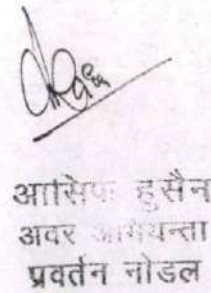 आसिफ हुसैन
अवर अभियन्ता
प्रवर्तन नोडल